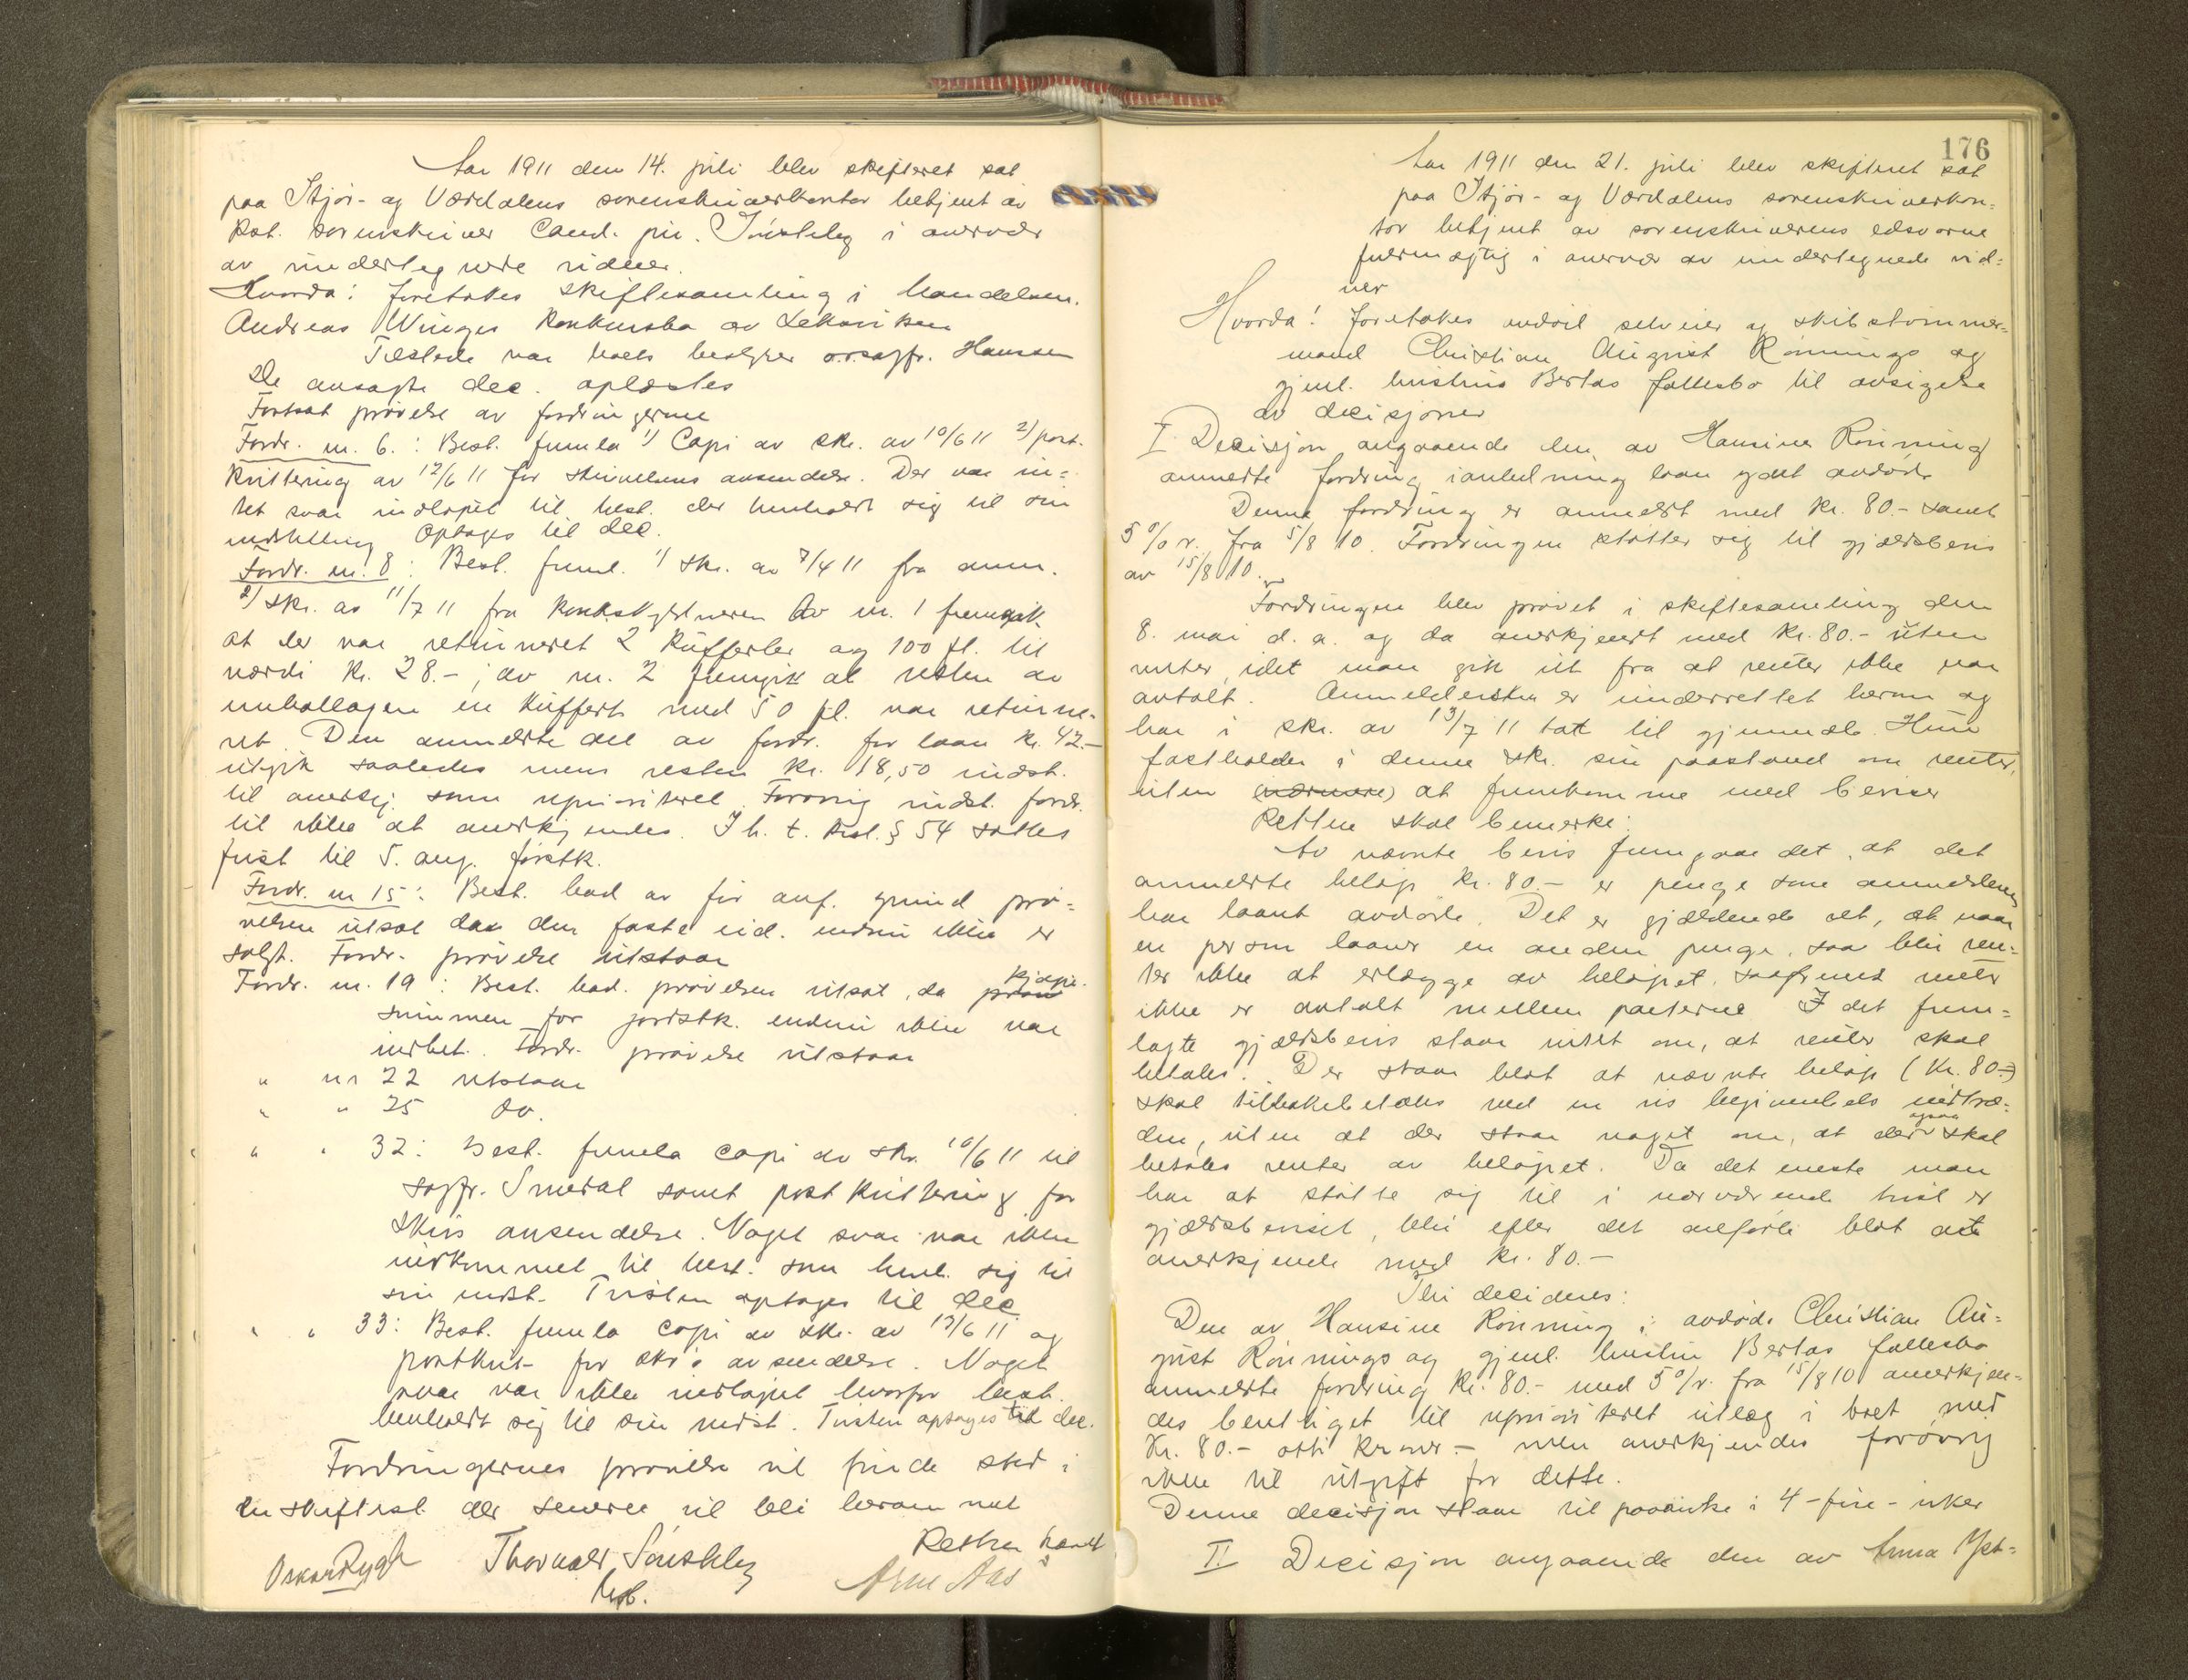 Aar 1911 den 14. juli blev skifteret sat
paa Stjør- og Værdalens sorenskriverkontor betjent av
Kst. sorenskriver Cand. jur. Smisteby i overvær
av undertegnede vidner.
Hvorda: foretokes skiftesamling i handelsm.
Andreas Winges konkursbo av Leksviken
Tilstede var boets bestyrer o.r.sagfr. Hanssen
De avsagte dec. oplæstes
Fortsat prøvelse av fordringerne
Fordr. nr. 6.: Best. fremla 1) Copi av skr. av 10/6 11 2) post-
kvittering av 12/6 11 for skrivelsens avsendelse. Der var in-
tet svar indløpet til best. der henholdt sig til sin
indstilling Optages til dec.
Fordr. nr. 8: Best. freml. 1) skr. av 7/4 11 fra anm.
2) skr. av 11/7 11 fra konkursskyldneren Av nr. 1 fremgik
at der var returneret 2 kufferter og 100 fl. til
værdi kr. 28.-; av nr. 2 fremgik at resten av
emballagen en kuffert med 50 fl. var returne-
ret. Den anmeldte del av fordr. for laan kr. 42.-
utgik saaledes mens resten kr. 18,50 indst.
til anerkj. som uprioriteret. Forøvrig indst. fordr.
til ikke at anerkjendes. I h. t. Ksl. § 54 sattes
frist til 5. aug. førstk.
Fordr. nr 15: Best. bad av før anf. grund prø-
velsen utsat da den faste eid. endnu ikke er
solgt. Fordr. prøvelse utstaar
Fordr. nr. 19: Best. bad. prøvelsen utsat, da kjøpe-
summen for jordstk. endnu ikke var
indbet. Fordr. prøvelse utstaar
" nr 22 utstaar
" " 25 do.
" " 32: Best. fremla copi av skr. 10/6 11 til
sagfr. Smedal samt postkvittering for
skrs avsendelse. Noget svar var ikke
indkommet til best. som henh. sig til
sin indst. Tvisten optages til dec.
" " 33: Best. fremla copi av skr. av 13/6 11 og
postkvit for skr's avsendelse. Noget
svar var ikke indløpet hvorfor best.
henholdt sig til sin indst. Tvisten optages til dec.
Fordringernes prøvelse vil finde sted i
en skiftesl. der senere vil bli berammet
Retten hævet
Oskar Rygh Thorvald Smisteby Arne Aas
kst.
176
Aar 1911 den 21. juli blev skifteret sat
paa Stjør- og Værdalens sorenskriverkon-
tor betjent av sorenskriverens edsvorne
fuldmægtig i overvær av undertegnede vid-
ner
Hvorda: foretokes avdød selveier og skibstømmer-
mand Christian August Rønnings og
gjenl. hustru Bertas fællesbo til avsigelse
av decisjoner
I Decisjon angaaende den av Hansine Rønning
anmeldte fordring i anledning laan ydet avdøde
Denne fordring er anmeldt med kr. 80.- samt
5 % r. fra 5/8 10. Fordringen støtter sig til gjældsbevis
av 15/8 10.
Fordringen blev prøvet i skiftesamling den
8. mai d. a. og da anerkjendt med kr. 80.- uten
renter, idet man gik ut fra at renter ikke var
avtalt. Anmeldersken er underrettet herom og
har i skr. av 13/7 11 tat til gjenmæle. Hun
fastholder i denne skr. sin paastand om renter,
uten (nærmere) at fremkomme med beviser
Retten skal bemerke:
Av nævnte bevis fremgaar det, at det
anmeldte beløp kr. 80.- er penge som anmelderen
har laant avdøde. Det er gjældende ret, at naar
en person laaner en anden penge, saa blir ren-
ter ikke at erlægge av beløpet, saafremt renter
ikke er avtalt mellem parterne I det frem-
lagte gjældsbevis staar intet om, at renter skal
betales. Der staar blot at nævnte beløp (kr. 80.-)
skal tilbakebetales ved en vis begivenheds indtræ-
den, uten at der staar noget om, at der ogsaa skal
betales renter av beløpet. Da det eneste man
har at støtte sig til i nærværende tvist er
gjældsbeviset, blir efter det anførte blot at
anerkjende med kr. 80.-
Thi decideres:
Den av Hansine Rønning i avdøde Christian Au-
gust Rønnings og gjenl. hustru Bertas fællesbo
anmeldte fordring kr. 80.- med 5 % r. fra 15/8 10 anerkjen-
des berettiget til uprioriteret utlæg i boet med
kr. 80.- otti kroner - men anerkjendes forøvrig
ikke til utgift for dette.
Denne decisjon staar til paaanke i 4 - fire - uker
II Decisjon angaaende den av Anna Yst-